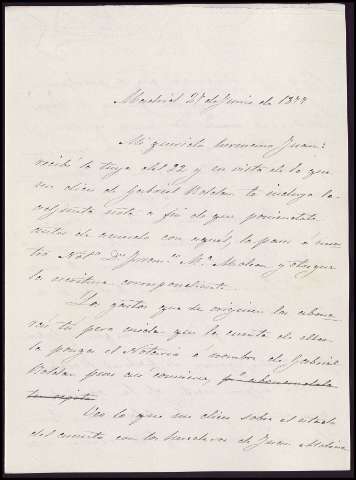 Madrid 27 de Junio de 1877
Mi querido hermano Juan:
recibí la tuya del 22 y en vista de lo que
me dices de Gabriel Roldan te incluyo la
adjunta nota a fin de que poniendote
antes de acuerdo con aquel, la pases á nues
tro Not.º D. Juan M.ª Molina y otorgue
la escritura correspondiente.
Los gastos que se originen los abona
rás tú pero cuida que la cuenta de ellos
la ponga el Notario á nombre de Gabriel
Roldan pues así conviene,
Veo lo que me dices sobre el estado
del asunto con los herederos de Juan Molina